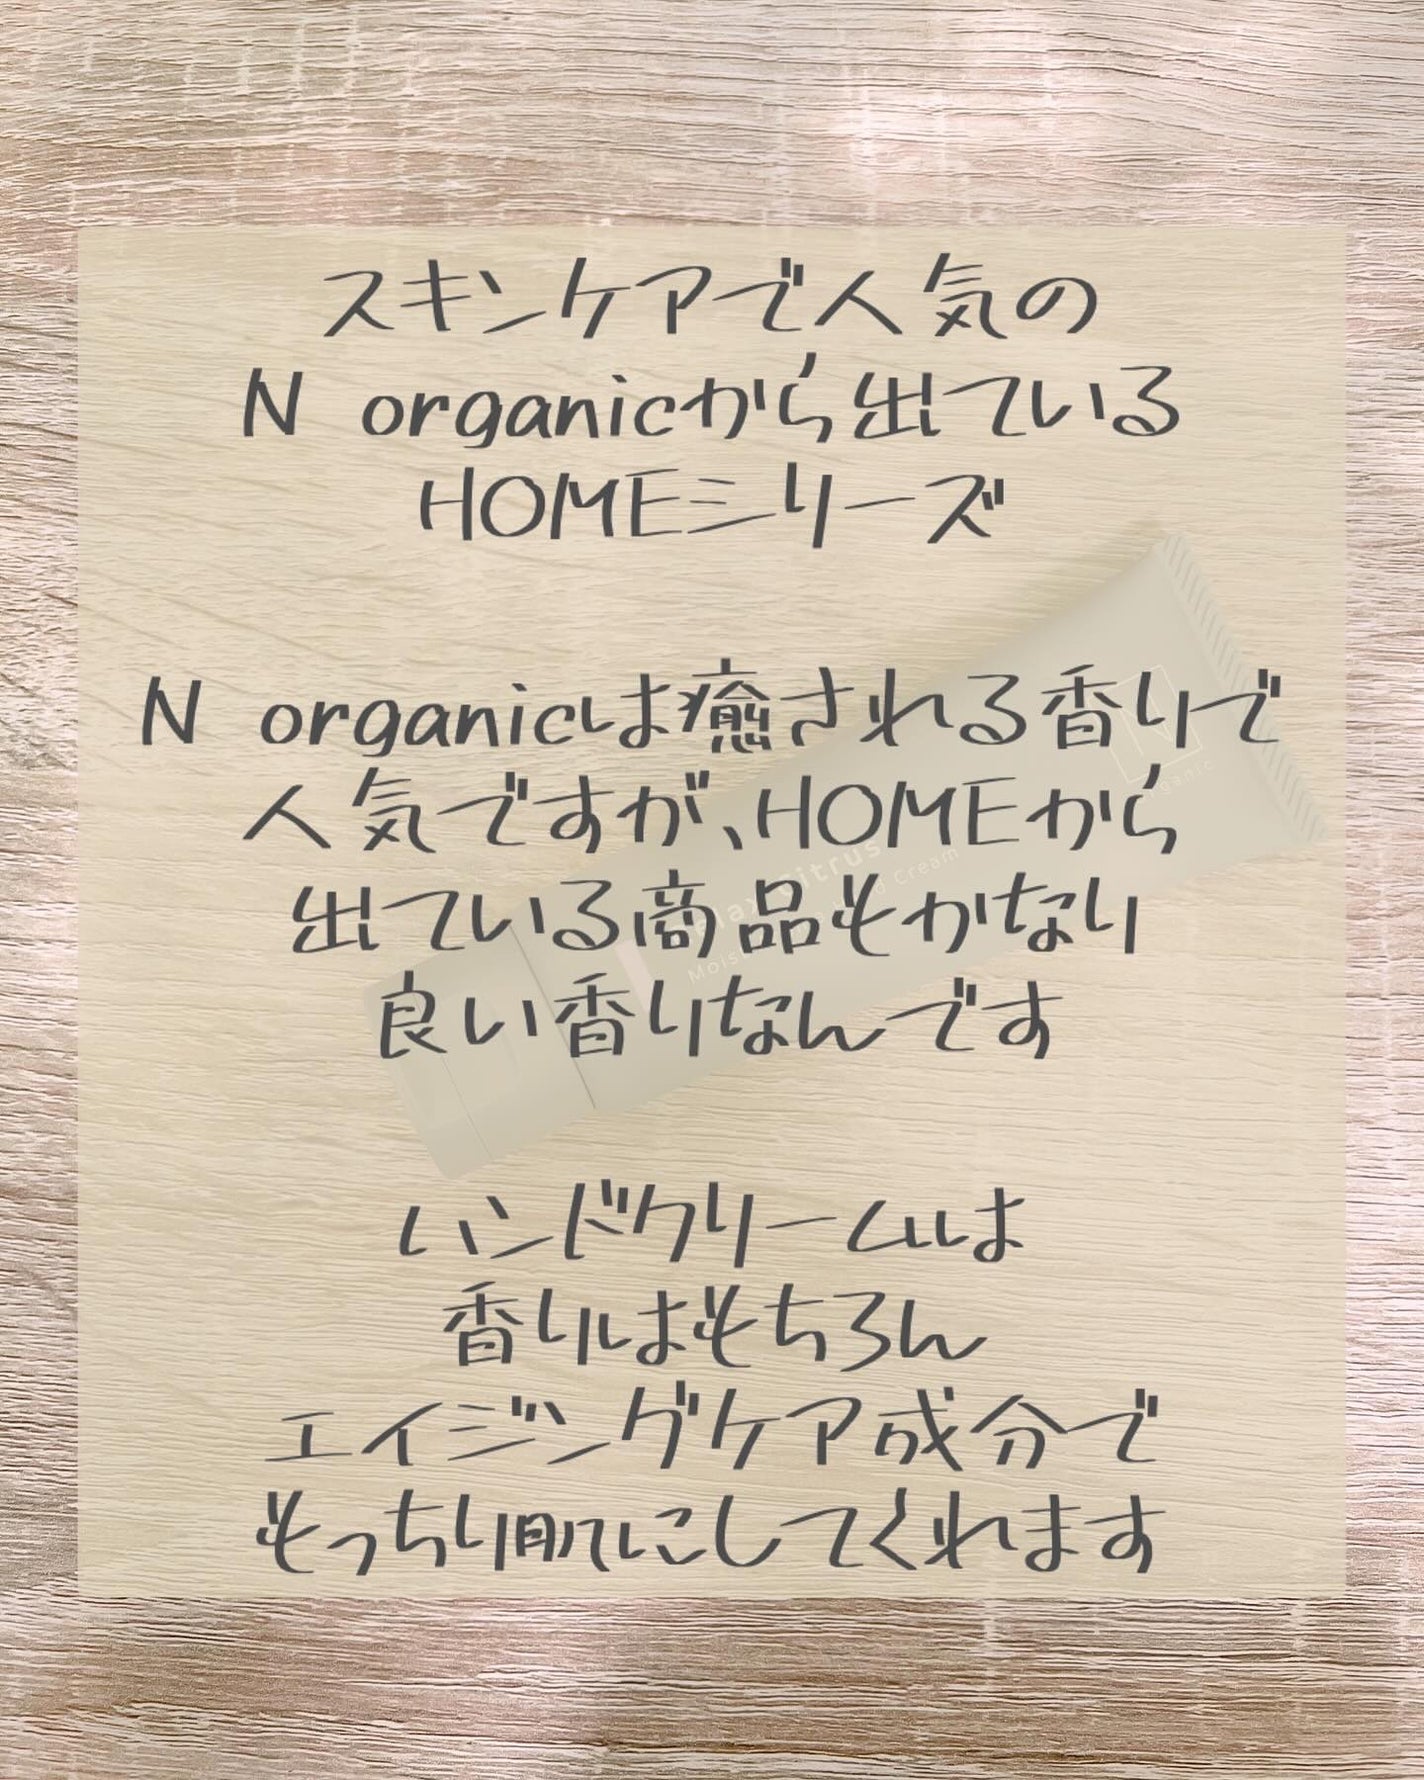 スキンケアで人気の
N organicから出ている
HOMEシリーズ
N organicは癒される香りで
人気ですが、HOMEから
出ている商品もかなり
良い香りなんです
ハンドクリームは
香りはもちろん
エイジングケア成分で
もっちり肌にしてくれます